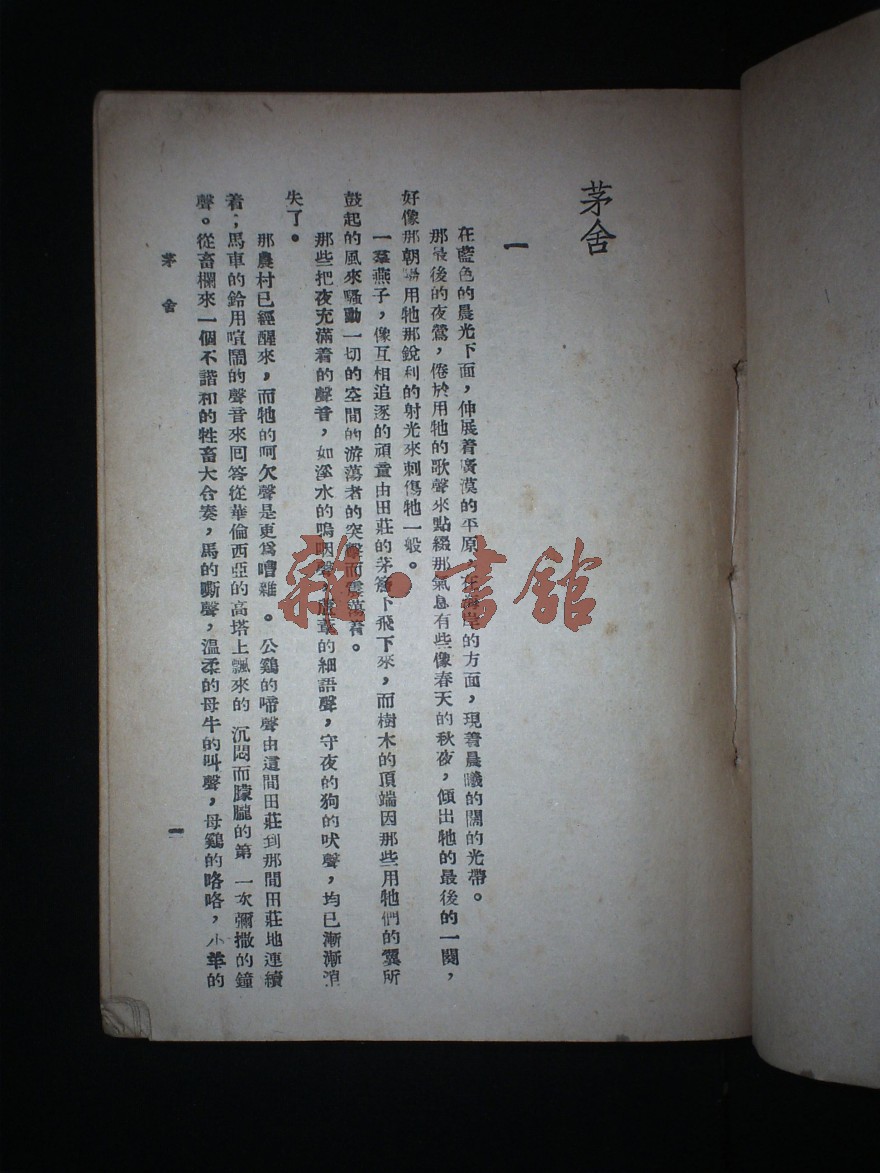 茅舍
一
在藍色的晨光下面，伸展着廣漠的平原，在海岸的方面，現着晨曦的闊的光帶。
那最後的夜鶯，倦於用牠的歌聲來點綴那氣息有些像春天的秋夜，傾出牠的最後的一闋，
好像那朝陽用牠那銳利的射光來刺傷牠一般。
一羣燕子，像互相追逐的頑童由田莊的茅簷下飛下來，而樹木的頂端因那些用牠們的翼所
鼓起的風來騷動一切的空間的游蕩者的突擊而震蕩着。
那些把夜充滿着的聲音，如溪水的嗚咽聲，蘆葦的細語聲，守夜的狗的吠聲，均已漸漸消
失了。
那農村已經醒來，而牠的呵欠聲是更爲嘈雜。公鷄的啼聲由這間田莊到那間田莊地連續
着；馬車的鈴用喧鬧的聲音來囘答從華倫西亞的高塔上飄來的沉悶而朦朧的第一次彌撒的鐘
聲。從畜欄來一個不諧和的牲畜大合奏，馬的嘶聲，溫柔的母牛的叫聲，母鷄的咯咯，小羊的
茅舍
一
雜·書館